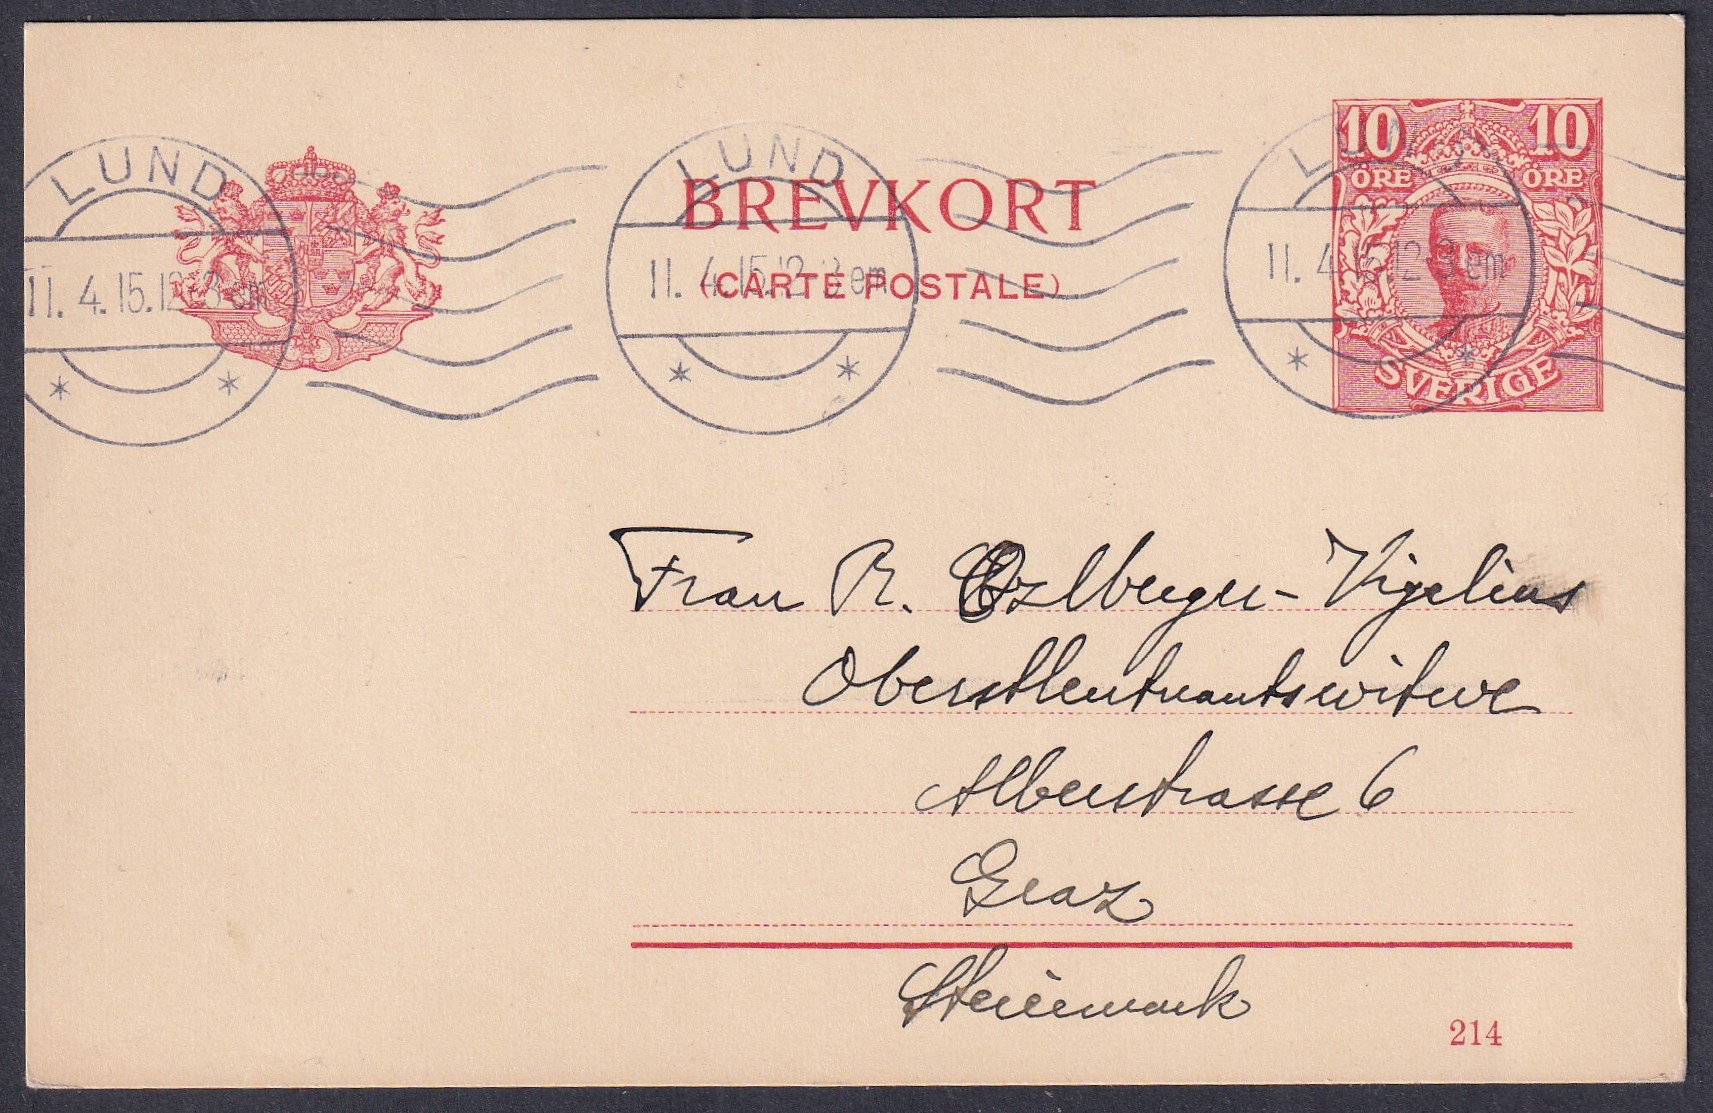 LUND
11. 4.15.12-3 em
BREVKORT
(CARTE POSTALE)
LUND
11. 4.15.12-3 em
10 10
ÖRE ÖRE
SVERIGE
LUND
11. 4.15.12-3 em
Frau R. Ozlberger-Vigelius
Oberstleutnantswitwe
Alberstrasse 6
Graz
Steiermark
214